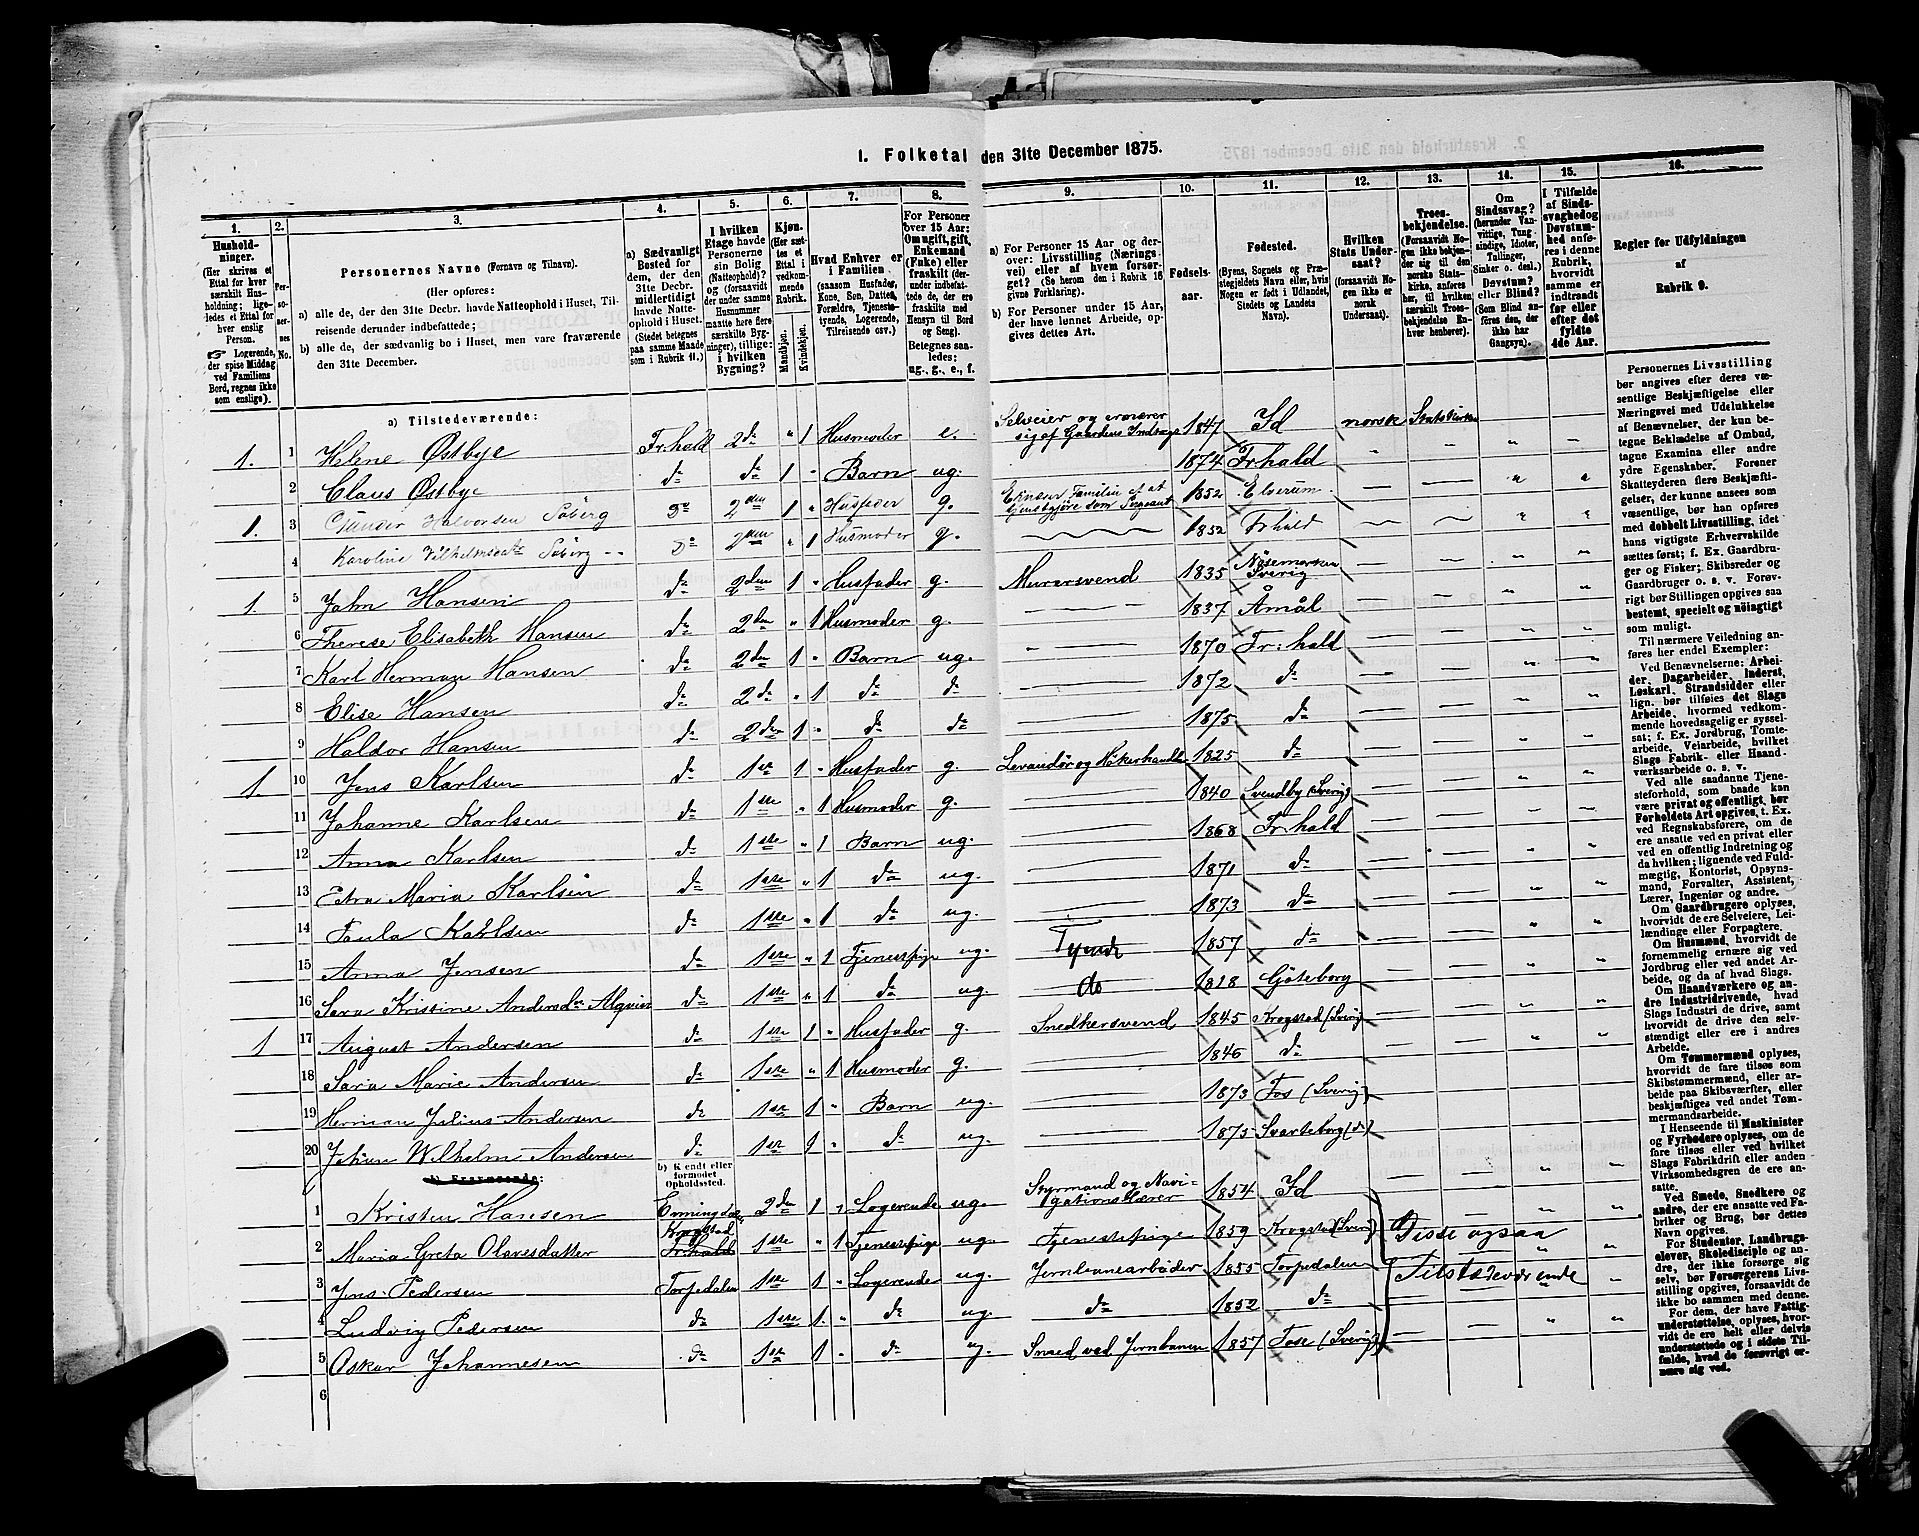 1. Folketal den 31te December 1875.
1. 2. 3. 4. 5. 6. 7. 8. 9. 10. 11. 12. 13. 14. 15. 16.
Husholdninger. (Her skrives et Ettal for hver særskilt Husholdning; ligeledes et Ettal for hver enslig Person. Logerende, der spise Middag ved Familiens Bord, regnes ikke som enslige).
Personernes No.
Personernes Navne (Fornavn og Tilnavn).
(Her opføres:
a) alle de, der den 31te Decbr. havde Natteophold i Huset, Tilreisende derunder indbefattede;
b) alle de, der sædvanlig bo i Huset, men vare fraværende den 31te December.
a) Sædvanligt Bosted for dem, der den 31te Decbr. midlertidigt havde Natteophold i Huset. (Stedet betegnes paa samme Maade som i Rubrik 11.)
I hvilken Etage havde Personerne sin Bolig (Natteophold)? og (forsaavidt der under samme Husnummer maatte høre flere særskilte Bygninger), tillige: i hvilken Bygning?
Kjøn. (Her sættes et Ettal i vedkommende Rubrik. Mandkjøn. Kvindekjøn.
Hvad Enhver er i Familien (saasom Husfader, Kone, Søn, Datter, Forældre, Tjenestetyende, Logerende, Tilreisende osv.)
For Personer over 15 Aar: Om ugift, gift, Enkemand (Enke) eller fraskilt (derunder indbefattede de, der ere fraskilte med Hensyn til Bord og Seng). Betegnes saaledes: ug., g., e., f.
a) For Personer 15 Aar og derover: Livsstilling (Næringsvei) eller af hvem forsørget? (Se herom den i Rubrik 16 givne Forklaring).
b) For Personer under 15 Aar, der have lønnet Arbeide, opgives dettes Art.
Fødselsaar.
Fødested. (Byens, Sognets og Præstegjeldets Navn eller, hvis Nogen er født i Udlandet, Stedets og Landets Navn).
Hvilken Stats Undersaat? (forsaavidt Nogen ikke er norsk Undersaat).
Troesbekjendelse. (Forsaavidt Nogen ikke bekjender sig til den norske Statskirke, anføres her, til hvilken særskilt Troesbekjendelse Enhver henhører).
Om Sindssvag? (herunder Vanvittige, Tungsindige, Idioter, Tullinger, Sinker o. desl.) Døvstum? eller Blind? (Som Blind anføres den, der ikke har Gangsyn).
I Tilfælde af Sindssvaghed og Døvstumhed anføres i denne Rubrik, hvorvidt samme er indtraadt før eller efter det fyldte 4de Aar.
Regler for Udfyldningen af Rubrik 9.
a) Tilstedeværende:
1. 1 Helene Østbye Fr.hald 2d „ 1 Husmoder e. Selveier og ernærer sig af Gaardens Indtægt 1847 Id norsk Statskirken
2 Claus Østbye d: d: 1 „ Barn ug. 1874 Fr.hald
1. 3 Gunder Halvorsen Søberg d: 2den 1 „ Husfader g. 1852 Elverum
4 Karoline Vilhelmsdt Søberg d: 2den „ 1 Husmoder g. 1852 Fr.hald
1. 5 John Hansen d: 2den 1 „ Husfader g. Murersvend 1835 Nösemarken Sverig
6 Therese Elisabeth Hansen d: 2den „ 1 Husmoder g. 1837 Åmål
7 Karl Herman Hansen d: 2den 1 „ Barn ug. 1870 Fr:hald
8 Elise Hansen d: 2d: „ 1 d: d: 1872 d:
9 Haldor Hansen d: 2den 1 „ d: d: 1875 d:
1. 10 Jens Karlsen d: 1ste 1 „ Husfader g. Levandør og Høkerhandler 1825 d:
11 Johanne Karlsen d: 1ste „ 1 Husmoder g. 1840 Svendby (Sverig)
12 Anna Karlsen d: 1ste „ 1 Barn ug. 1868 Fr.hald
13 Petra Maria Karlsen d: 1ste „ 1 d: ug. 1871 d:
14 Paula Karlsen d: 1ste „ 1 d: ug. 1873 d:
15 Anna Jensen d: 1ste „ 1 Tjenestpige ug. Tyende 1857 d:
16 Sara Kristine Andersdr Alquin d: 1ste „ 1 d: ug. do 1818 Göteborg
1 17 August Andersen d: 1ste 1 „ Husfader g. Snedkersvend 1845 Krogstad (Sverig)
18 Sara Marie Andersen d: 1ste „ 1 Husmoder g. 1846 d:
19 Herman Julius Andersen d: 1ste 1 „ Barn ug. 1873 Fos (Sverig)
20 Johan Wilhelm Andersen d: 1ste 1 „ d: ug. 1875 Svarteborg (d:)
b) Fraværende: b) Kendt eller formodet Opholdssted.
1 Kristen Hansen Enningdalen 2den 1 „ Logerende ug. Styrmand og Navigationslærer 1854 Id
2 Maria Greta Olavesdatter Krogstad Fr.hald 1ste „ 1 Tjenestepige ug. Tjenestepige 1859 Krogstad (Sverig) Disse ogsaa
3 Jens Pedersen Torpedalen 1ste 1 „ Logerende ug. Jernbanearbeider 1855 Torpedalen Tilstedeværende
4 Ludvig Pedersen d: 1ste 1. „ d: ug. d: 1852 d:
5 Oskar Johannesen d: 1ste 1 „ d: ug. Smed ved Jernbanen 1857 Fose (Sverig)
6
Personernes Livsstilling bør angives efter deres væsentlige Beskjæftigelse eller Næringsvei med Udelukkelse af Benævnelser, der kun betegne Beklædelse af Ombud, tagne Examina eller andre ydre Egenskaber. Forener Skatteyderen flere Beskjæftigelser, der kunne ansees som væsentlige, bør han opføres med dobbelt Livsstilling, idet hans vigtigste Erhvervskilde sættes først; f. Ex. Gaardbruger og Fisker; Skibsreder og Gaardbruger o. s. v. Forøvrigt bør Stillingen opgives saa bestemt, specielt og nöiagtigt som muligt.
Til nærmere Veiledning anføres her endel Exempler:
Ved Benævnelserne: Arbeider, Dagarbeider, Inderst, Løskarl, Strandsidder eller lign. bør tilføies det Slags Arbeide, hvormed vedkommende hovedsagelig er sysselsat; f. Ex. Jordbrug, Tomtearbeide, Veiarbeide, hvilket Slags Fabrik- eller Haandværksarbeide o. s. v.
Ved alle saadanne Tjenesteforhold, som baade kan være privat og offentligt, bør Forholdets Art opgives, t. Ex. ved Regnskabsførere, om de ere ansatte ved en privat eller ved en offentlig Indretning og da hvilken; lignende ved Fuldmægtig, Kontorist, Opsynsmand, Forvalter, Assistent, Lærer, Ingeniør og andre.
Om Gaardbrugere oplyses, hvorvidt de ere Selveiere, Leilændinge eller Forpagtere.
Om Husmænd, hvorvidt de fornemmelig ernære sig ved Jordbrug eller ved andet Arbeide, og da af hvad Slags.
Om Haandværkere og andre Industridrivende, hvad Slags Industri de drive, samt hvorvidt de drive den selvstændigt eller ere i andres Arbeide.
Om Tømmermænd oplyses, hvorvidt de fare tilsøs som Skibstømmermænd, eller arbeide paa Skibsværfter, eller beskjæftiges ved andet Tømmermandsarbeide.
I Henseende til Maskinister og Fyrbødere oplyses, om de fare tilsøs eller ved hvilket Slags Fabrikdrift eller anden Virksomhedsgren de ere ansatte.
Ved Smede, Snedkere og andre, der ere ansatte ved Fabriker og Brug, bør dettes Navn opgives.
For Studenter, Landbrugselever, Skoledisciple og andre, der ikke forsørge sig selv, bør Forsørgerens Livsstilling opgives, forsaavidt de ikke bo sammen med denne.
For dem, der have Fattigunderstøttelse, oplyses, hvorvidt de ere helt eller delvis understøttede og i sidste Tilfælde, hvad de forøvrigt ernære sig ved.